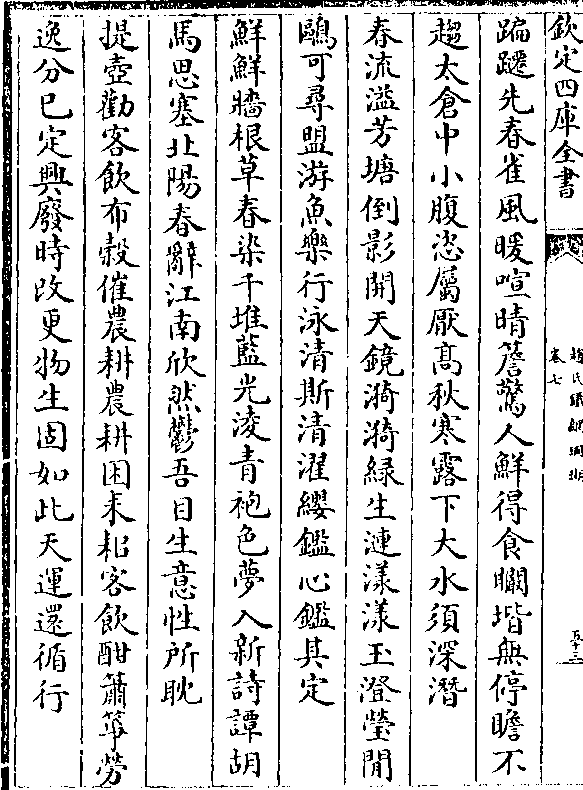 欽定四庫全書
卷七
蹁躚先春雀風暖喧晴簷驚人鮮得食瞷堦無停瞻不
趨太倉中小腹恣屬厭髙秋寒露下大水須深潛
春流溢芳塘倒影開天鏡漪漪緑生漣漾漾玉澄瑩閒
鷗可尋盟游魚樂行泳清斯清濯纓鑑心鑑其定
鮮鮮牆根草春染千堆藍光淩青袍色夢入新詩譚胡
馬思塞北陽春辭江南欣然鬱吾目生意性所眈
提壺勸客飲布榖催農耕農耕困耒耜客飲酣簫箏勞
逸分已定興廢時改更物生固如此天運還循行